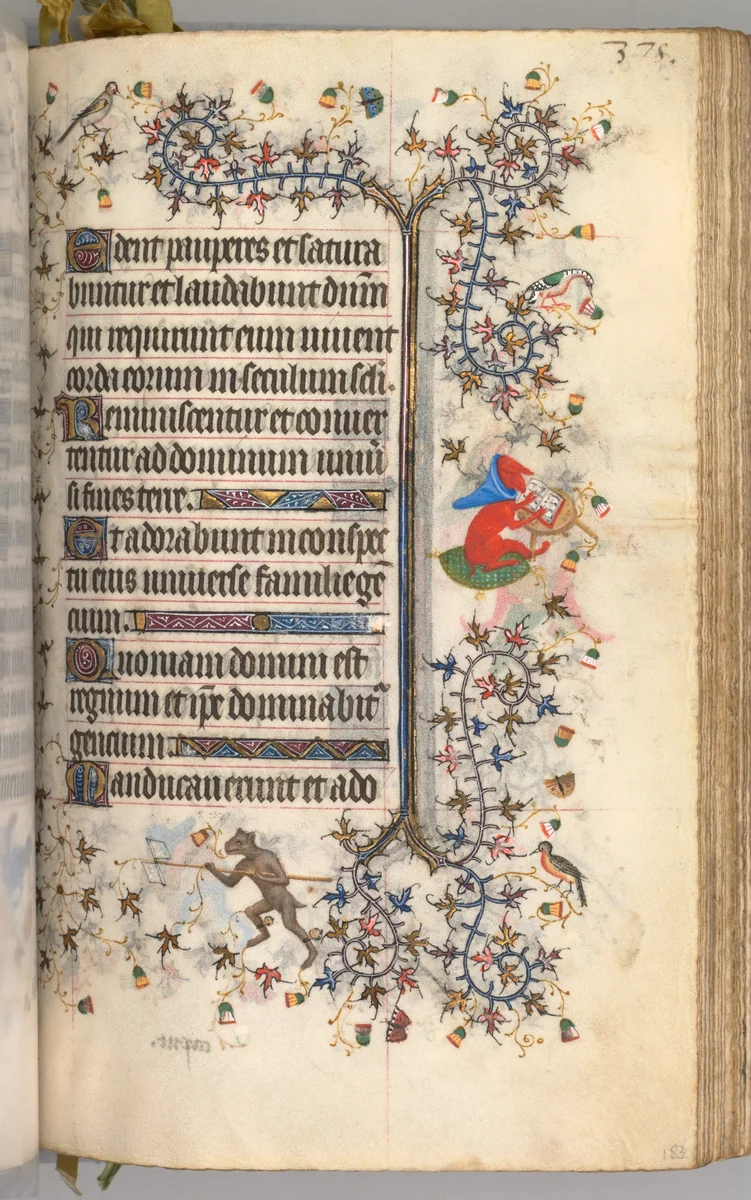 375.
Edent pauperes et satura
buntur et laudabunt dn̄m
qui requirunt eum vivent
corda eorum in seculum scl̄i.
Reminiscentur et conver
tentur ad dominum univ̄
si fines terre.
Et adorabunt in conspec
tu eius universe familie gē
cium.
Quoniam domini est
regnum et ip̄e dominabit᷑
gencium.
Manducaverunt et ado
183